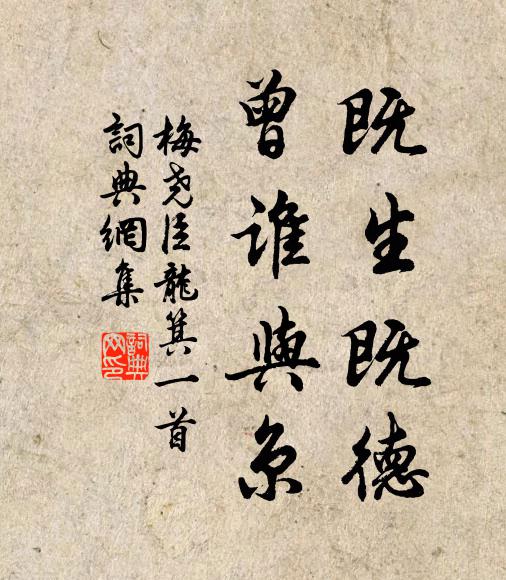 既生既德
曾谁與京
梅尧臣龍箕一首
詞典網集
詞典
网印